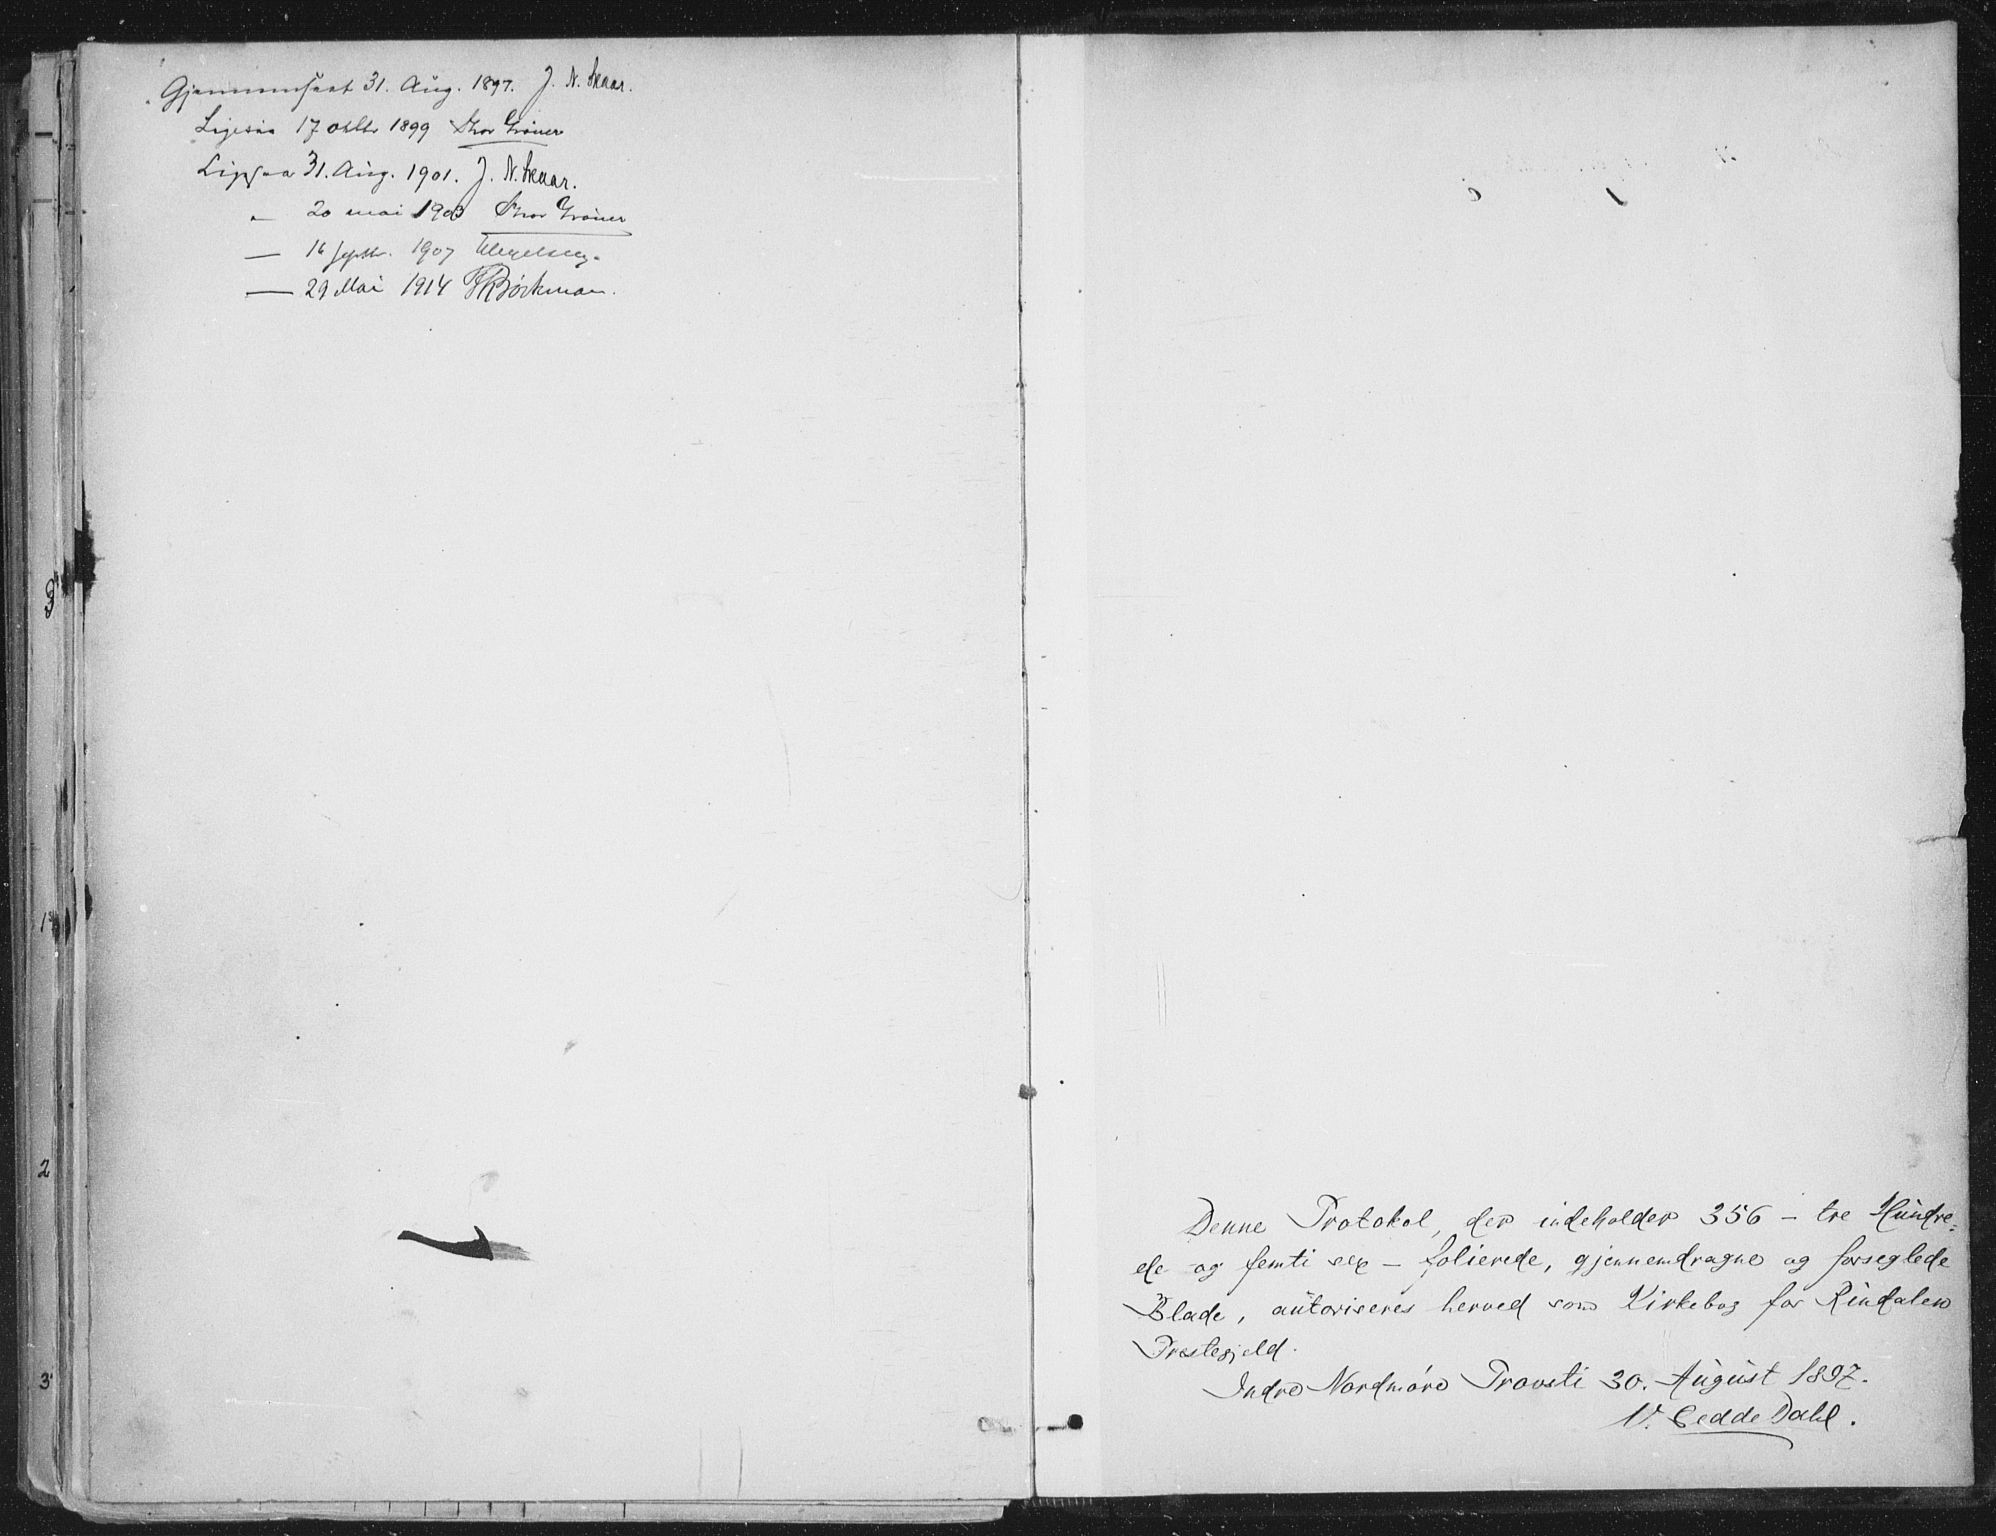 Gjennemseet 31. Aug. 1897. J. N. Skaar.
Ligesaa 17 oktbr 1899 Thor Grøner
Ligesaa 31. Aug. 1901. J. N. Skaar.
„ 20 mai 1903 Thor Grøner
— 16 septbr. 1907
— 29 Mai 1914 Bøckman.
Denne Protokol, der indeholder 356 – tre Hundre-
de og femti sex – folierede, gjennemdragne og forseglede
Blade, autoriseres herved som Kirkebog for Rindalen
Præstegjeld.
Indre Nordmøre Provsti 30. August 1897.
N. Gedde Dahl.
3
1
2
3